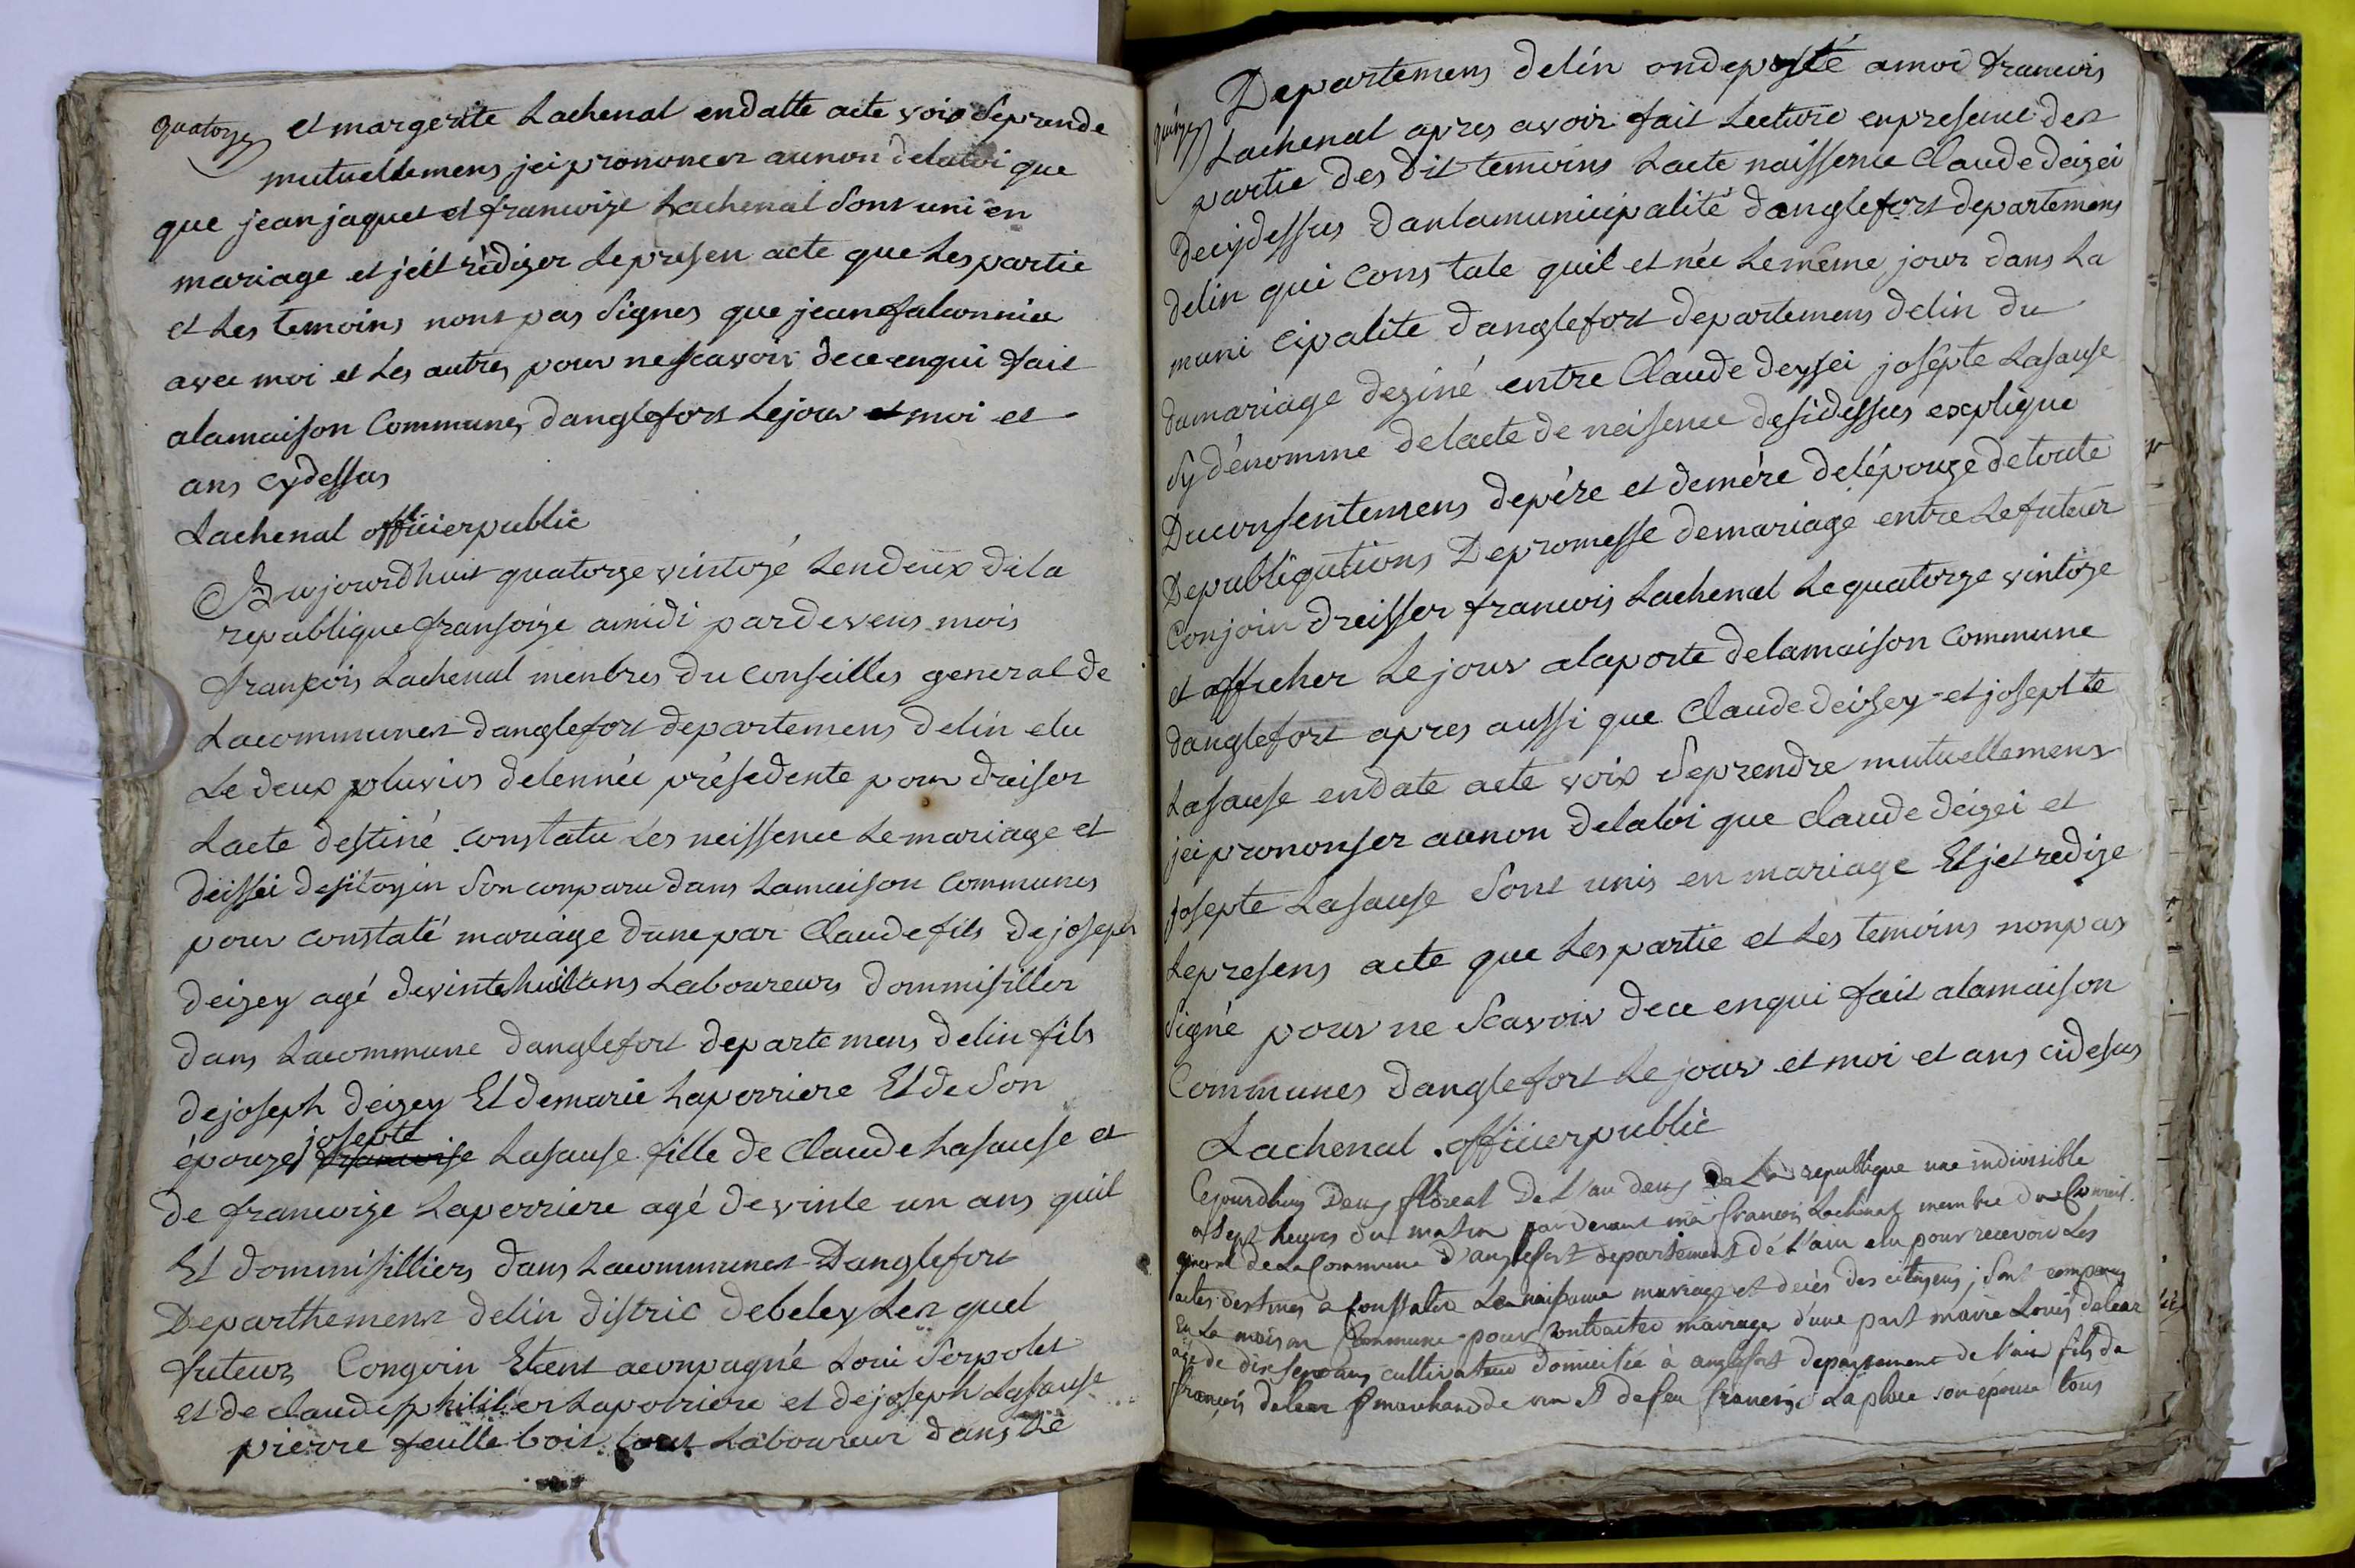 quatorze et margerite Lachenal endatte acte voix Seprende
mutuellemens jei prononcer aunon delaloi que
que jean jaques et francoize Lachenal Sont uni en
mariage et jeit rédizer Le presen acte que Les partie
et Les temoins nont pas Signes que jean falconnier
avec moi et Les autres pour ne scavoir dece enqui fait
alamaison Communes danglefort Lejour et moi et
ans cydessus
Lachenal officier public
Aujourdhuit quatorze vintozé Lendeux dela
republique fransoize amidi pardevens mois
françois Lachenal menbres du Conseilles general de
Lacommunes danglefort departemens delin elu
Le deux pluvios delennée présedente pour dreiser
Lacte destiné constatu Les neissence Le mariage et
deissei desitoyin Son conparu dans Lamaison Communes
pour constaté mariage dune par Claude fils de joseph
deizey agé devintehuit ans Laboureurs dommisiller
dans Lacommune danglefort departemens delin fils
dejoseph deizey Et demarie Laperriere Et de Son
josepte
épouzes francoise Lasause fille de Claude Lasause et
de francoize Laperriere agé de vinte un ans quil
Et dommisilliers dans Lacommunes Danglefort
Departhemens delin distric debeley Les quel
futeurs Congoin Etent aconpagné Loui Serpolet
et de claude philiber Laperriere et dejoseph Lasause
pierre feuille bois tout Laboureur dans Le
quinze Departemens delin ondeposté amoi francois
Lachenal apres avoir fait Lecture enpresence des
partie des dit temoins Lacte naissence Claude deizei
decydessus danlamunicipalité danglefort departemens
delin qui constate quil et née Lemême jour dans La
muni cipalite danglefort departemens delin du
dumariage deziné entre Claude deyzei josepte Lasause
sydénomme delacte de neisence desidessus explique
Duconsentemens depére et demére delépouze detoute
Depubliquations Depromesse demariage entre Lefuteur
Conjoin dreisser francois Lachenal Le quatorze vintoze
et afficher Lejour alaporte delamaison Commune
danglefort apres aussi que Claude deizey et josepte
Lasause endate acte voix Seprendre mutuellemens
jei prononser aunon delaloi que claude déizei et
josepte Lasause Sont unis en mariage Et jet redize
Lepresens acte que Les partie et Les temoins nonpas
Signé pour ne Scavoir dece enqui fait alamaison
Communes danglefort Lejour et moi et ans cidesus
Lachenal officier public
Cejourdhuy deux floreal de l'an deux de La republique une indivisible
a sept heures du matin pardevant moi francois Lachenal membre du Conseil
general de La Commune d'anglefort departement de l'ain elu pour recevoir Les
actes destines a constater La naissance mariage et décès des citoyens, sont comparus
En La maison Commune pour contracter mariage d'une part
age de dix sept ans cultivateur domicilié à anglefort departement de l'ain fils de
francois marchand de vin et de feu francoise Laplace son épouse tous